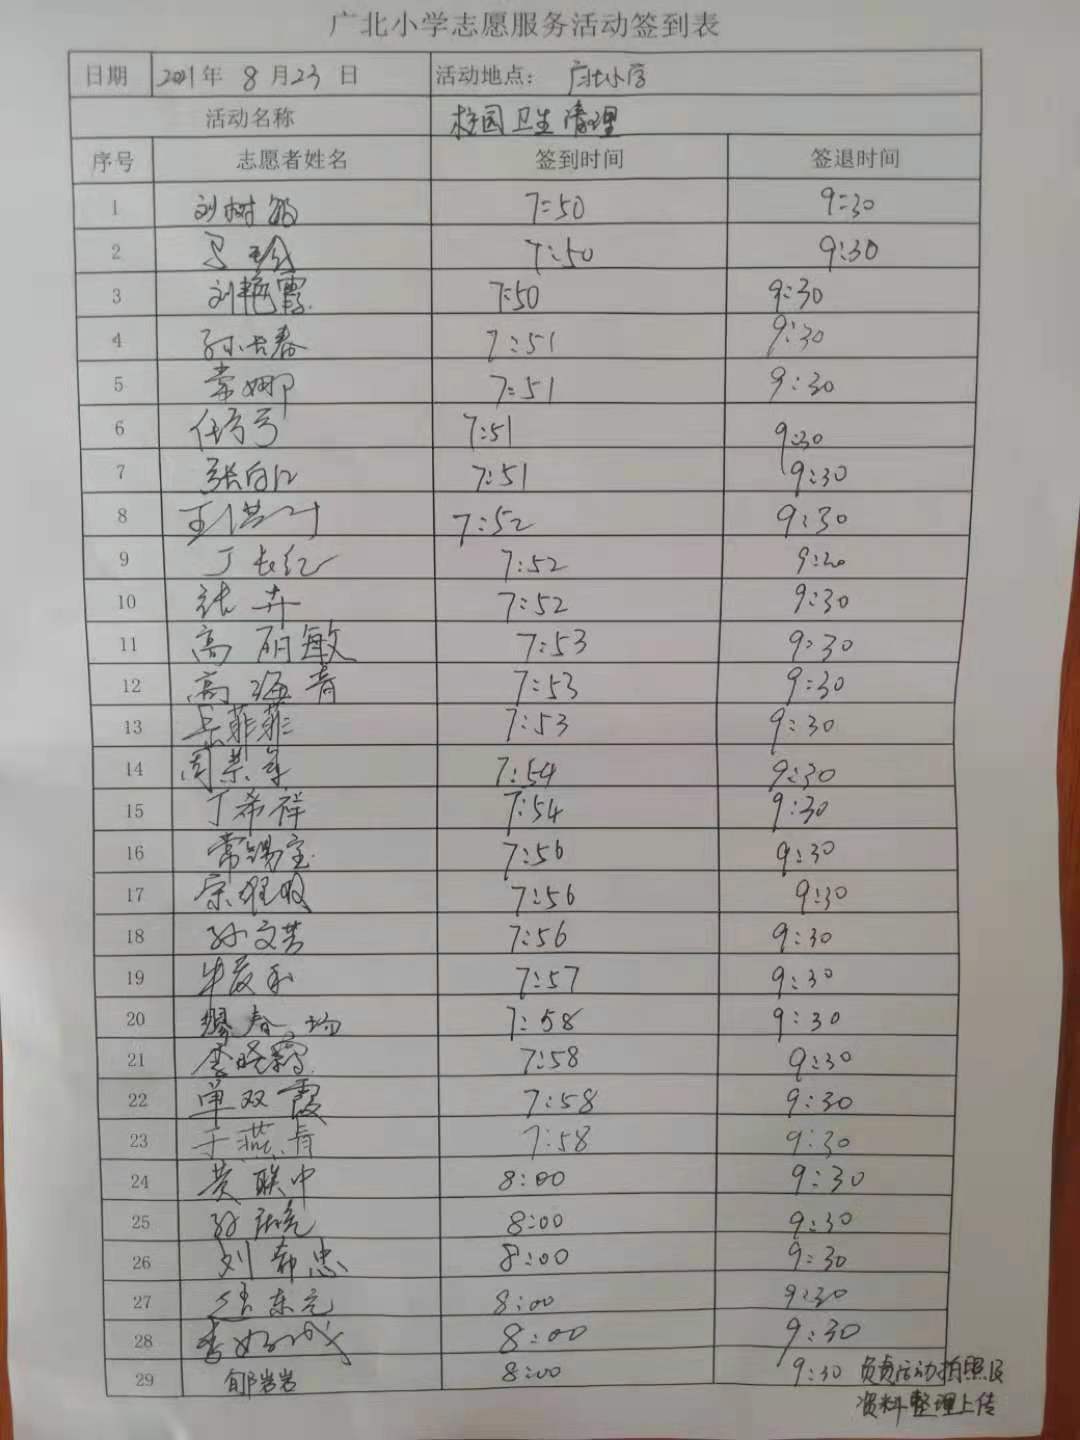 广北小学志愿服务活动签到表
日期 2021年 8月23日 活动地点： 广北小学
活动名称 校园卫生清理
序号 志愿者姓名 签到时间 签退时间
1 刘树 7:50 9:30
2 7:50 9:30
3 刘艳霞 7:50 9:30
4 孙长春 7:51 9:30
5 常娜 7:51 9:30
6 7:51 9:30
7 张 7:51 9:30
8 王洪叶 7:52 9:30
9 丁长红 7:52 9:20
10 张卉 7:52 9:30
11 高丽敏 7:53 9:30
12 高海青 7:53 9:30
13 岳菲菲 7:53 9:30
14 周荣 7:54 9:30
15 丁希祥 7:54 9:30
16 常锡宝 7:56 9:30
17 宋 7:56 9:30
18 孙文芳 7:56 9:30
19 牛 7:57 9:30
20 春 7:58 9:30
21 李晓霞 7:58 9:30
22 单双霞 7:58 9:30
23 于燕青 7:58 9:30
24 黄联中 8:00 9:30
25 孙 8:00 9:30
26 刘希忠 8:00 9:30
27 东元 8:00 9:30
28 李 8:00 9:30
29 郇岩岩 8:00 9:30 负责活动拍照及
资料整理上传